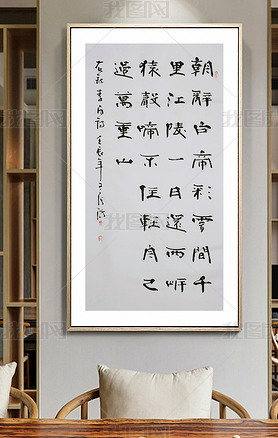 朝辭白帝彩雲間千
里江陵一日還兩岸
猿聲啼不住輕舟已
過萬重山
李白詩